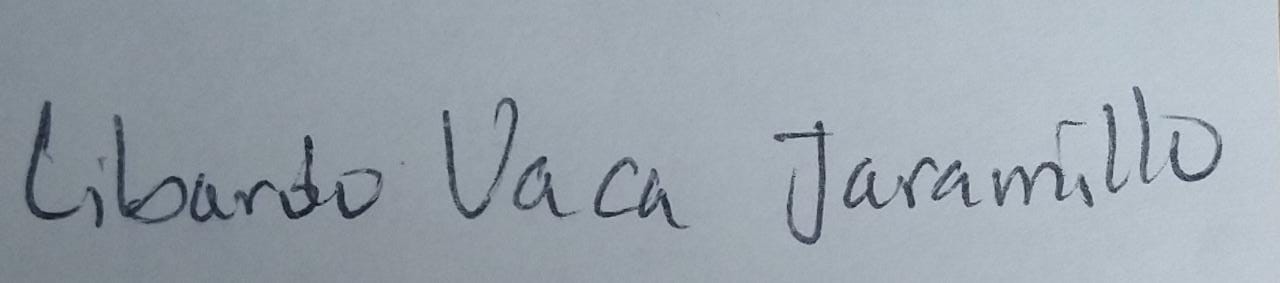 Libardo Vaca Jaramillo